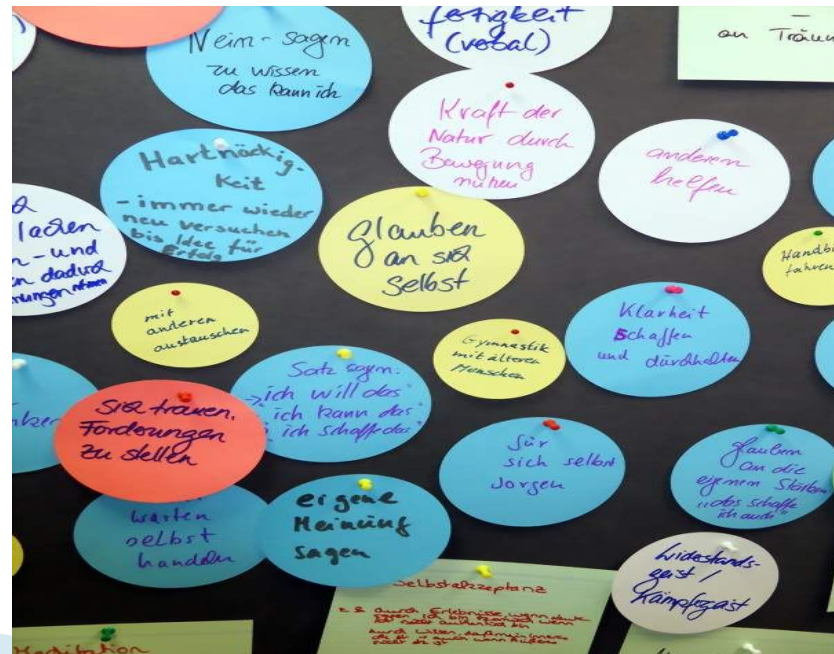 Nein-sagen
zu wissen
das kann ich
festigkeit
(verbal)
an Träu
Kraft der
Natur durch
Bewegung
nutzen
anderen
helfen
Hartnäckig-
keit
- immer wieder
neu versuchen
bis Idee für
Erfolg
lachen
n - und
n dadurch
glauben
an sich
selbst
Handbi
fahren
mit
anderen
austauschen
Gymnastik
mit älteren
Menschen
Klarheit
schaffen
und durchhalten
Satz sagen:
"ich will das
ich kann das
ich schaffe das"
sich trauen,
Forderungen
zu stellen
für
sich selbst
sorgen
glauben
an die
eigenen Stärken
"das schaffe
ich auch"
warten
selbst
handeln
eigene
Meinung
sagen
Widerstands-
geist /
Kampfgeist
Selbstakzeptanz
z.B. durch Erlebnisse, wenn
Meditation